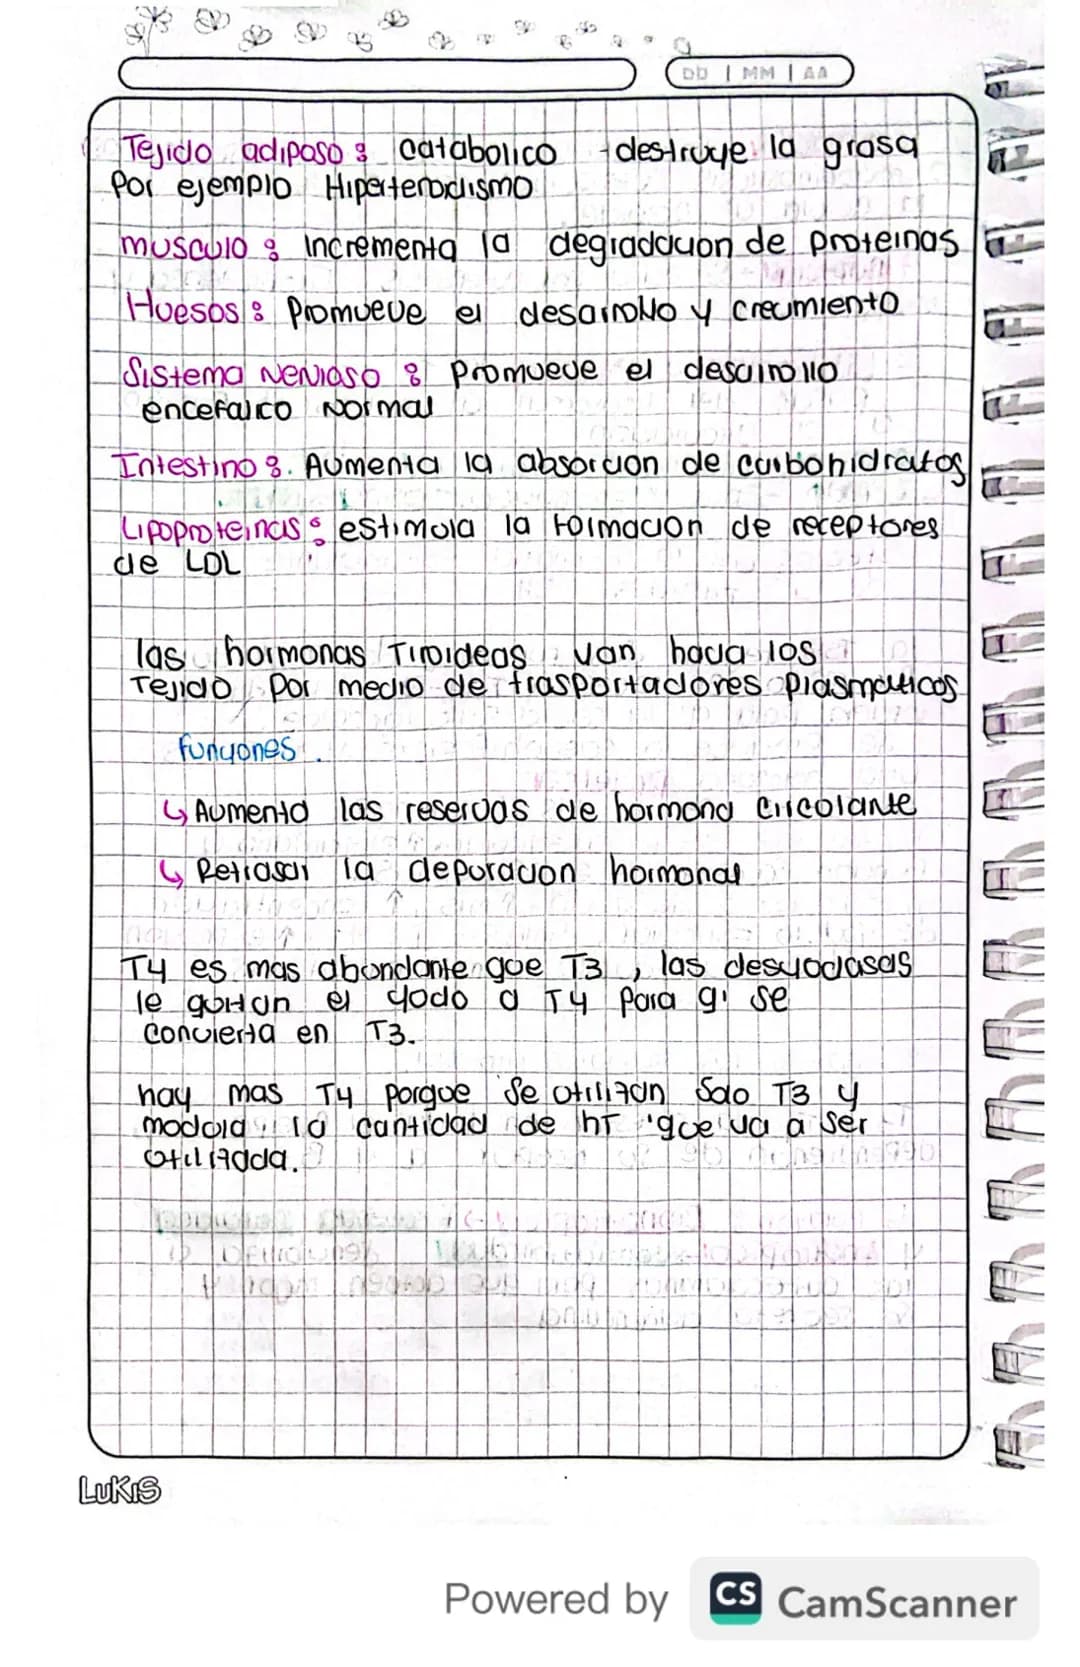 DD | MM | AA
Tejido adiposo : catabolico - destruye la grasa
Por ejemplo Hipertenoidismo
musculo : Incrementa la degradacion de proteinas
Huesos : Promueve el desarrollo y crecimiento
Sistema Nervioso : Promueve el desarrollo
encefalico Normal
Intestino : Aumenta la absorcion de carbohidratos
Lipoproteinas : estimula la formacion de receptores
de LDL
las hormonas Tiroideas van hacia los
Tejido Por medio de trasportadores Plasmaticos
funciones .
↳ Aumenta las reservas de hormona circolante
↳ Retrasar la depuracion hormonal
T4 es mas abundante que T3 , las desyodasas
le quitan el yodo a T4 para q' se
convierta en T3.
hay mas T4 porque se utilizan solo T3 y
modula la cantidad de hT que va a ser
utilizada.
LuKis
Powered by CS CamScanner